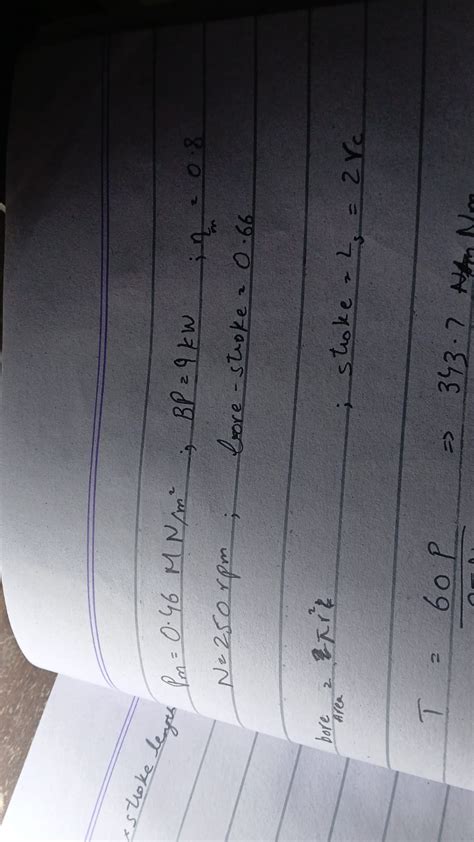 × stroke length
Pm = 0.46 MN/m² ; BP = 9 kW ; ηm = 0.8
N = 250 rpm ; bore-stroke = 0.66
bore area = πr² ; stroke = Ls = 2rc
T = 60P ⇒ 343.7 Nm